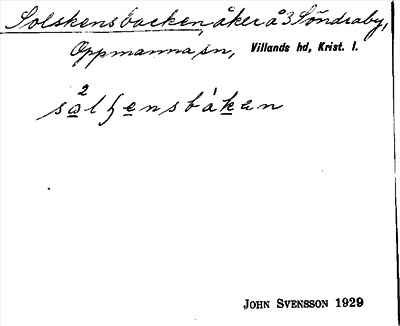 Solskensbacken, åker å 3 Söndraby,
Oppmanna sn, Villands hd, Krist. l.
sa²lʃensbàkan
JOHN SVENSSON 1929